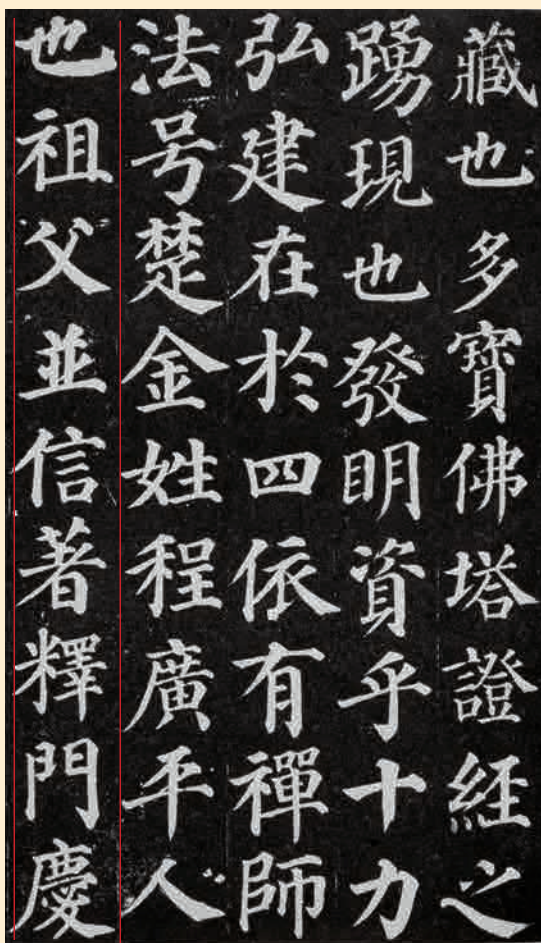 藏也多寶佛塔證経之
踴現也發明資乎十力
弘建在於四依有禪師
法号楚金姓程廣平人
也祖父並信著釋門慶